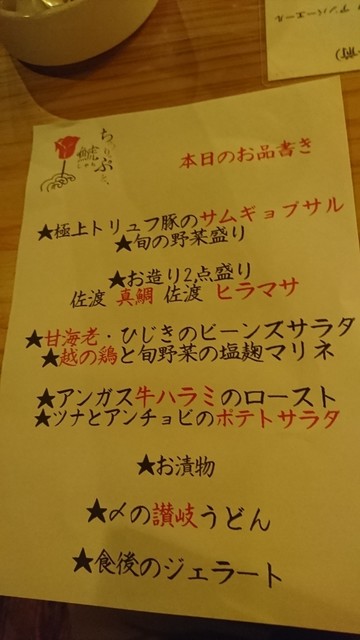 アンバーエール
ちゅりっぷと
鯱
本日のお品書き
★極上トリュフ豚のサムギョプサル
★旬の野菜盛り
★お造り2点盛り
佐渡 真鯛 佐渡 ヒラマサ
★甘海老・ひじきのビーンズサラタ
★越の鶏と旬野菜の塩麹マリネ
★アンガス牛ハラミのロースト
★ツナとアンチョビのポテトサラタ
★お漬物
★〆の讃岐うどん
★食後のジェラート